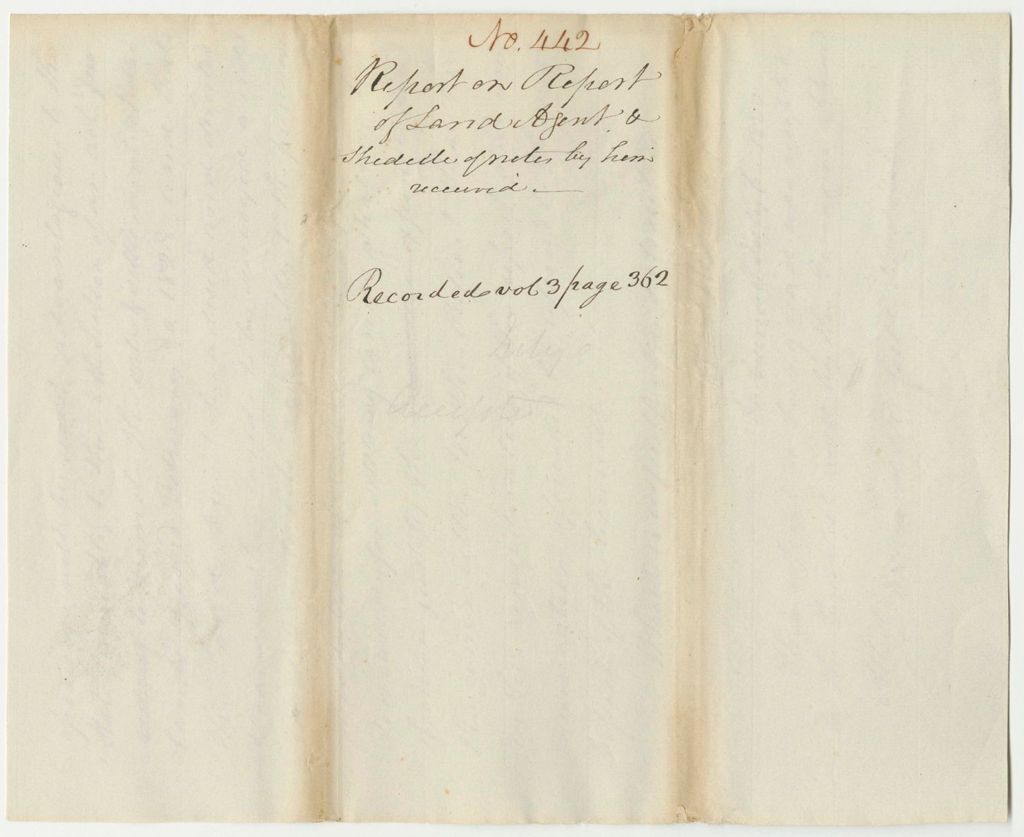 No. 442
Report on Report
of Land Agent &
Shedule of notes by him
received. —
Recorded vol 3 page 362